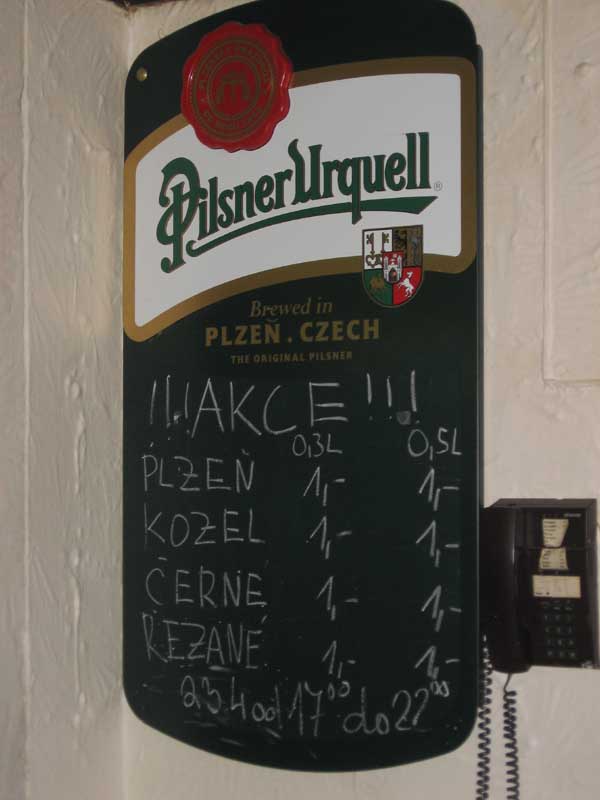 Pilsner Urquell ®
Brewed in
PLZEŇ . CZECH
THE ORIGINAL PILSNER
!!!AKCE!!!
0,3L 0,5L
PLZEŇ 1,- 1,-
KOZEL 1,- 1,-
ČERNÉ 1,- 1,-
ŘEZANÉ 1,- 1,-
23.4 od 17⁰⁰ do 22⁰⁰